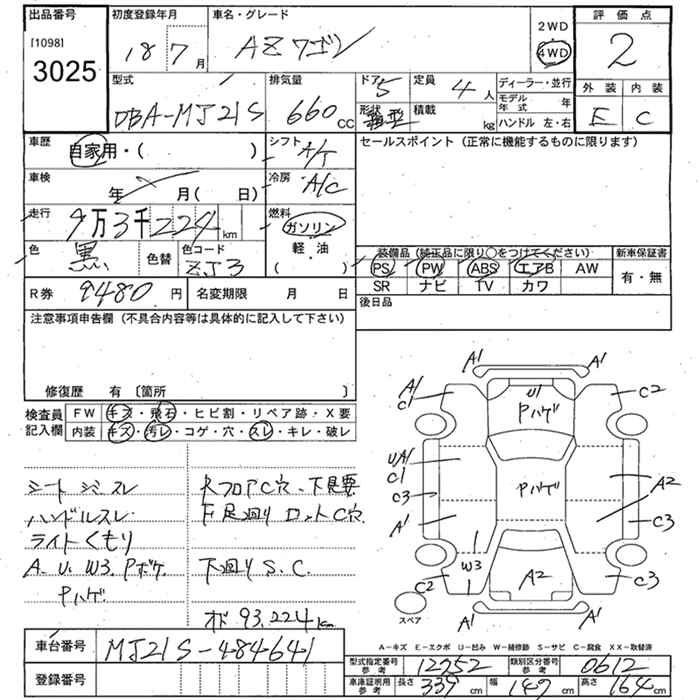 出品番号 初度登録年月 車名・グレード 2WD 評価点
[1098] 18 7月 AZワゴン 4WD 2
3025
型式 排気量 ドア 5 定員 4人 ディーラー・並行 外装 内装
DBA-MJ21S 660cc 形状 箱型 積載 kg モデル年式 年 E C
ハンドル 左・右
車歴 自家用・( ) シフト A/T セールスポイント (正常に機能するものに限ります)
車検 年 月( 日) 冷房 A/C
走行 9万3千224km 燃料 ガソリン
軽・油
( )
色 黒 色替 色コード ZJ3
装備品 (純正品に限り○をつけてください) 新車保証書
PS PW ABS エアB AW 有・無
SR ナビ TV カワ
R券 9480円 名変期限 月 日 後日品
注意事項申告欄 (不具合内容等は具体的に記入して下さい)
修復歴 有 〔箇所 〕
検査員記入欄 FW キズ・飛石・ヒビ割・リペア跡・X要
内装 キズ・汚レ・コゲ・穴・スレ・キレ・破レ
シートシミスレ
ハンドルスレ
ライトくもり
A.U.W3.Pボケ.
Pハゲ
フロアC穴、下見要
下足回り ロットC穴
下回りS.C.
オド 93,224km
A1 A1
A1 C1 U1 Pハゲ C2
UA1 C1 Pハゲ
C3 A2
A1 C3
W3
C2 A2 C3
A1 A1
スペア
A-キズ E-エクボ U-凹み W-補修跡 S-サビ C-腐食 XX-取替済
車台番号 MJ21S-484641
登録番号
型式指定番号 参考 12752 類別区分番号 参考 0612
車庫証明用 参考 長さ 339cm 幅 147cm 高さ 164cm